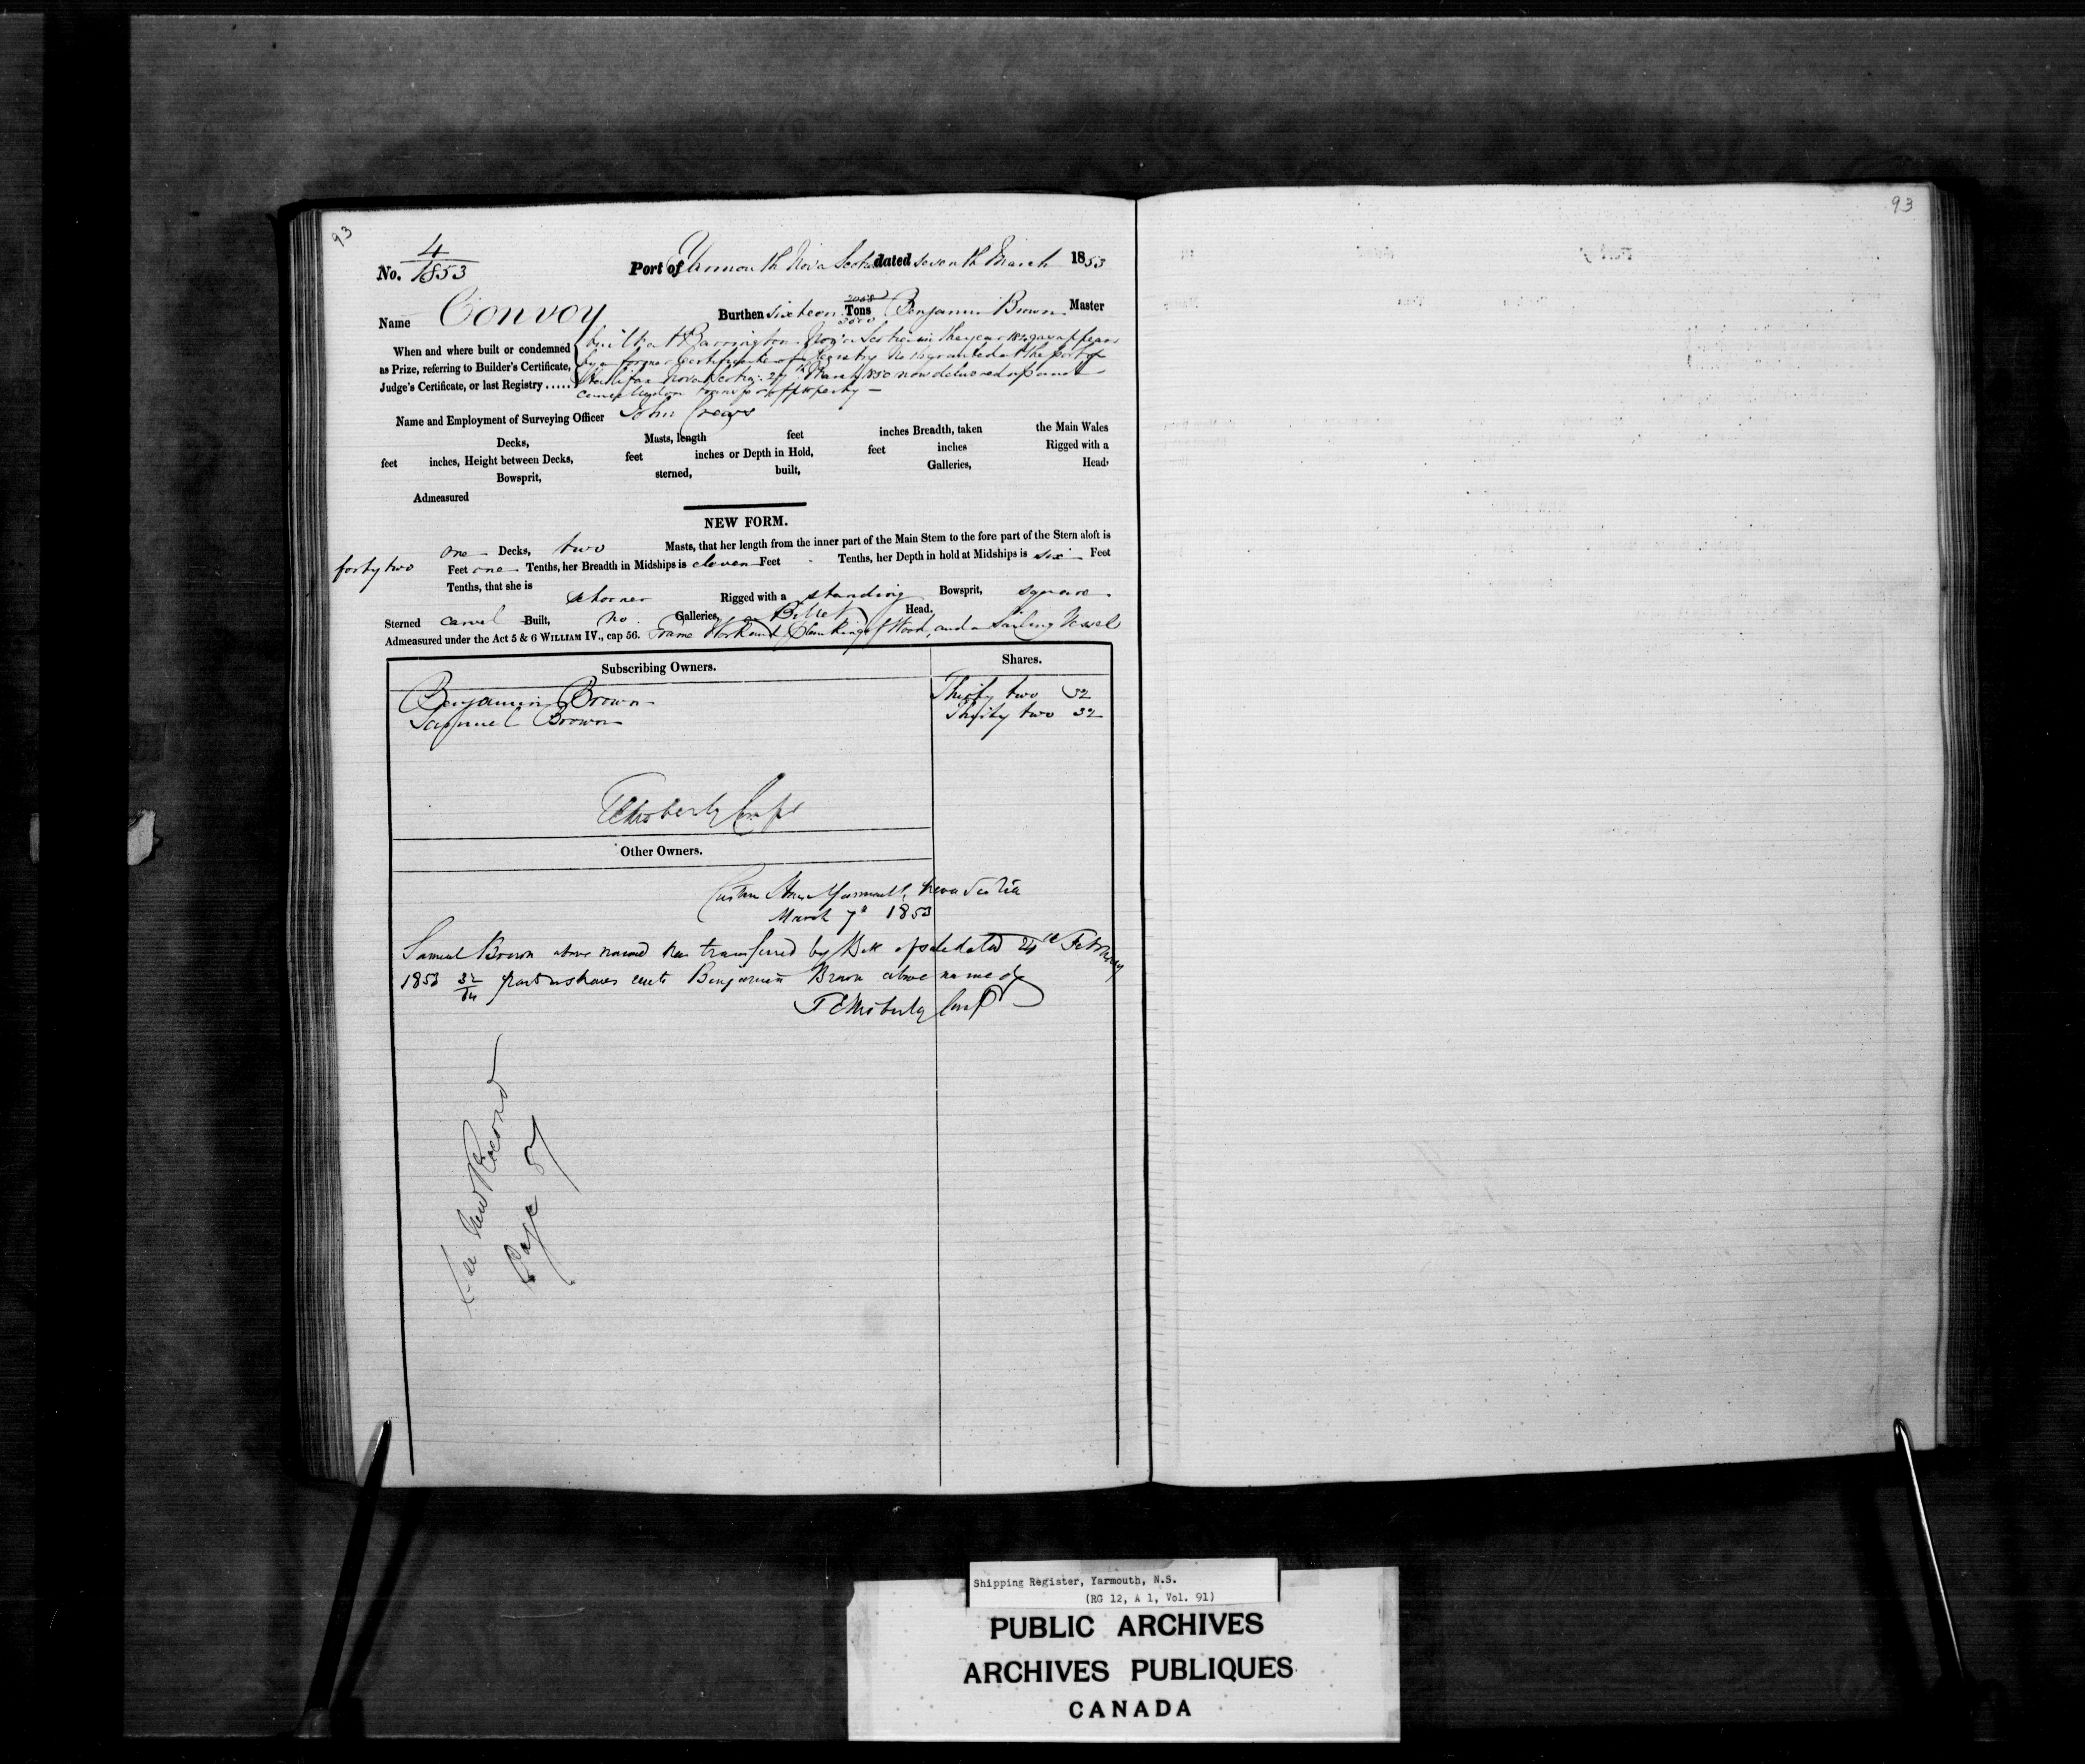 93
93
No. 4/1853
Port of Yarmouth Nova Scotia dated seventh March 1853
Name Convoy
Burthen sixteen Tons Benjamin Brown Master
When and where built or condemned
as Prize, referring to Builder's Certificate,
Judge's Certificate, or last Registry ......
built at Barrington Nova Scotia in the year as appears
by a former Certificate of Registry No granted at the Port of
Halifax Nova Scotia 27th March 1850 now delivered up and
cancelled on transfer of property
Name and Employment of Surveying Officer John
Decks, Masts, length feet inches Breadth, taken the Main Wales
feet inches, Height between Decks, feet inches or Depth in Hold, feet inches Rigged with a
Bowsprit, sterned, built, Galleries, Head,
Admeasured
NEW FORM.
one Decks, two Masts, that her length from the inner part of the Main Stem to the fore part of the Stern aloft is
forty two Feet one Tenths, her Breadth in Midships is eleven Feet Tenths, her Depth in hold at Midships is six Feet
Tenths, that she is schooner Rigged with a standing Bowsprit, square
Sterned carvel Built, no Galleries, a Billet Head.
Admeasured under the Act 5 & 6 WILLIAM IV., cap 56. Frame Work and Planking of Wood, and a Sailing Vessel
Subscribing Owners. Shares.
Benjamin Brown Thirty two 32
Samuel Brown Thirty two 32
Other Owners.
Custom House Yarmouth, Nova Scotia
March 7th 1853
Samuel Brown above named has transferred by Bill of sale dated 24th February
1853 32/64 parts or shares unto Benjamin Brown above named
See New Record
Page 57
Shipping Register, Yarmouth, N.S.
(RG 12, A 1, Vol. 91)
PUBLIC ARCHIVES
ARCHIVES PUBLIQUES
CANADA